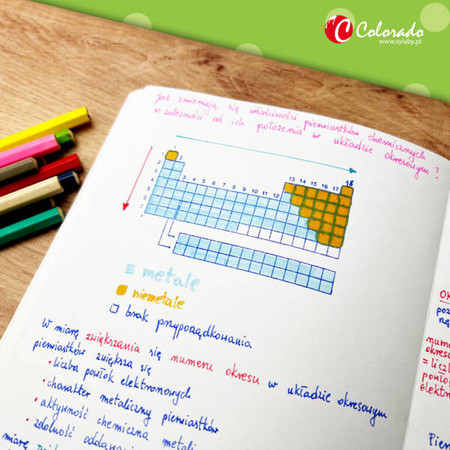 Colorado
www.sylaby.pl
Jak zmieniają się właściwości pierwiastków chemicznych
w zależności od ich położenia w układzie okresowym?
1
18
2
13 14 15 16 17
3 4 5 6 7 8 9 10 11 12
metale
niemetale
brak przyporządkowania
W miarę zwiększania się numeru okresu w układzie okresowym
pierwiastków zwiększa się
• liczba powłok elektronowych
• charakter metaliczny pierwiastków
• aktywność chemiczna metali
• zdolność oddawania
miarę
OK
poz
numer
okresu
= licz
powłok
elektron
Pier